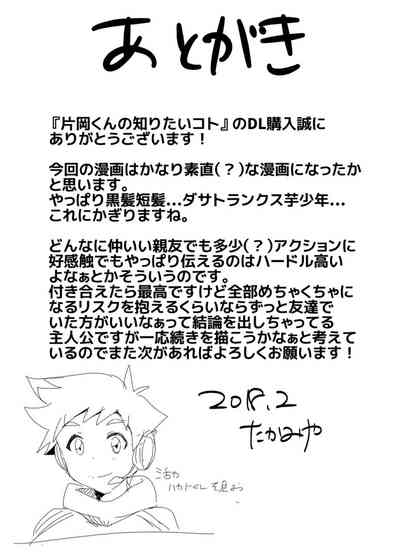 あとがき
『片岡くんの知りたいコト』のDL購入誠に
ありがとうございます！
今回の漫画はかなり素直(？)な漫画になったか
と思います。
やっぱり黒髪短髪...ダサトランクス芋少年...
これにかぎりますね。
どんなに仲いい親友でも多少(？)アクションに
好感触でもやっぱり伝えるのはハードル高い
よなぁとかそういうのです。
付き合えたら最高ですけど全部めちゃくちゃに
なるリスクを抱えるくらいならずっと友達で
いた方がいいなぁって結論を出しちゃってる
主人公ですが一応続きを描こうかなぁと考えて
いるのでまた次があればよろしくお願います！
2018.2
たかみや